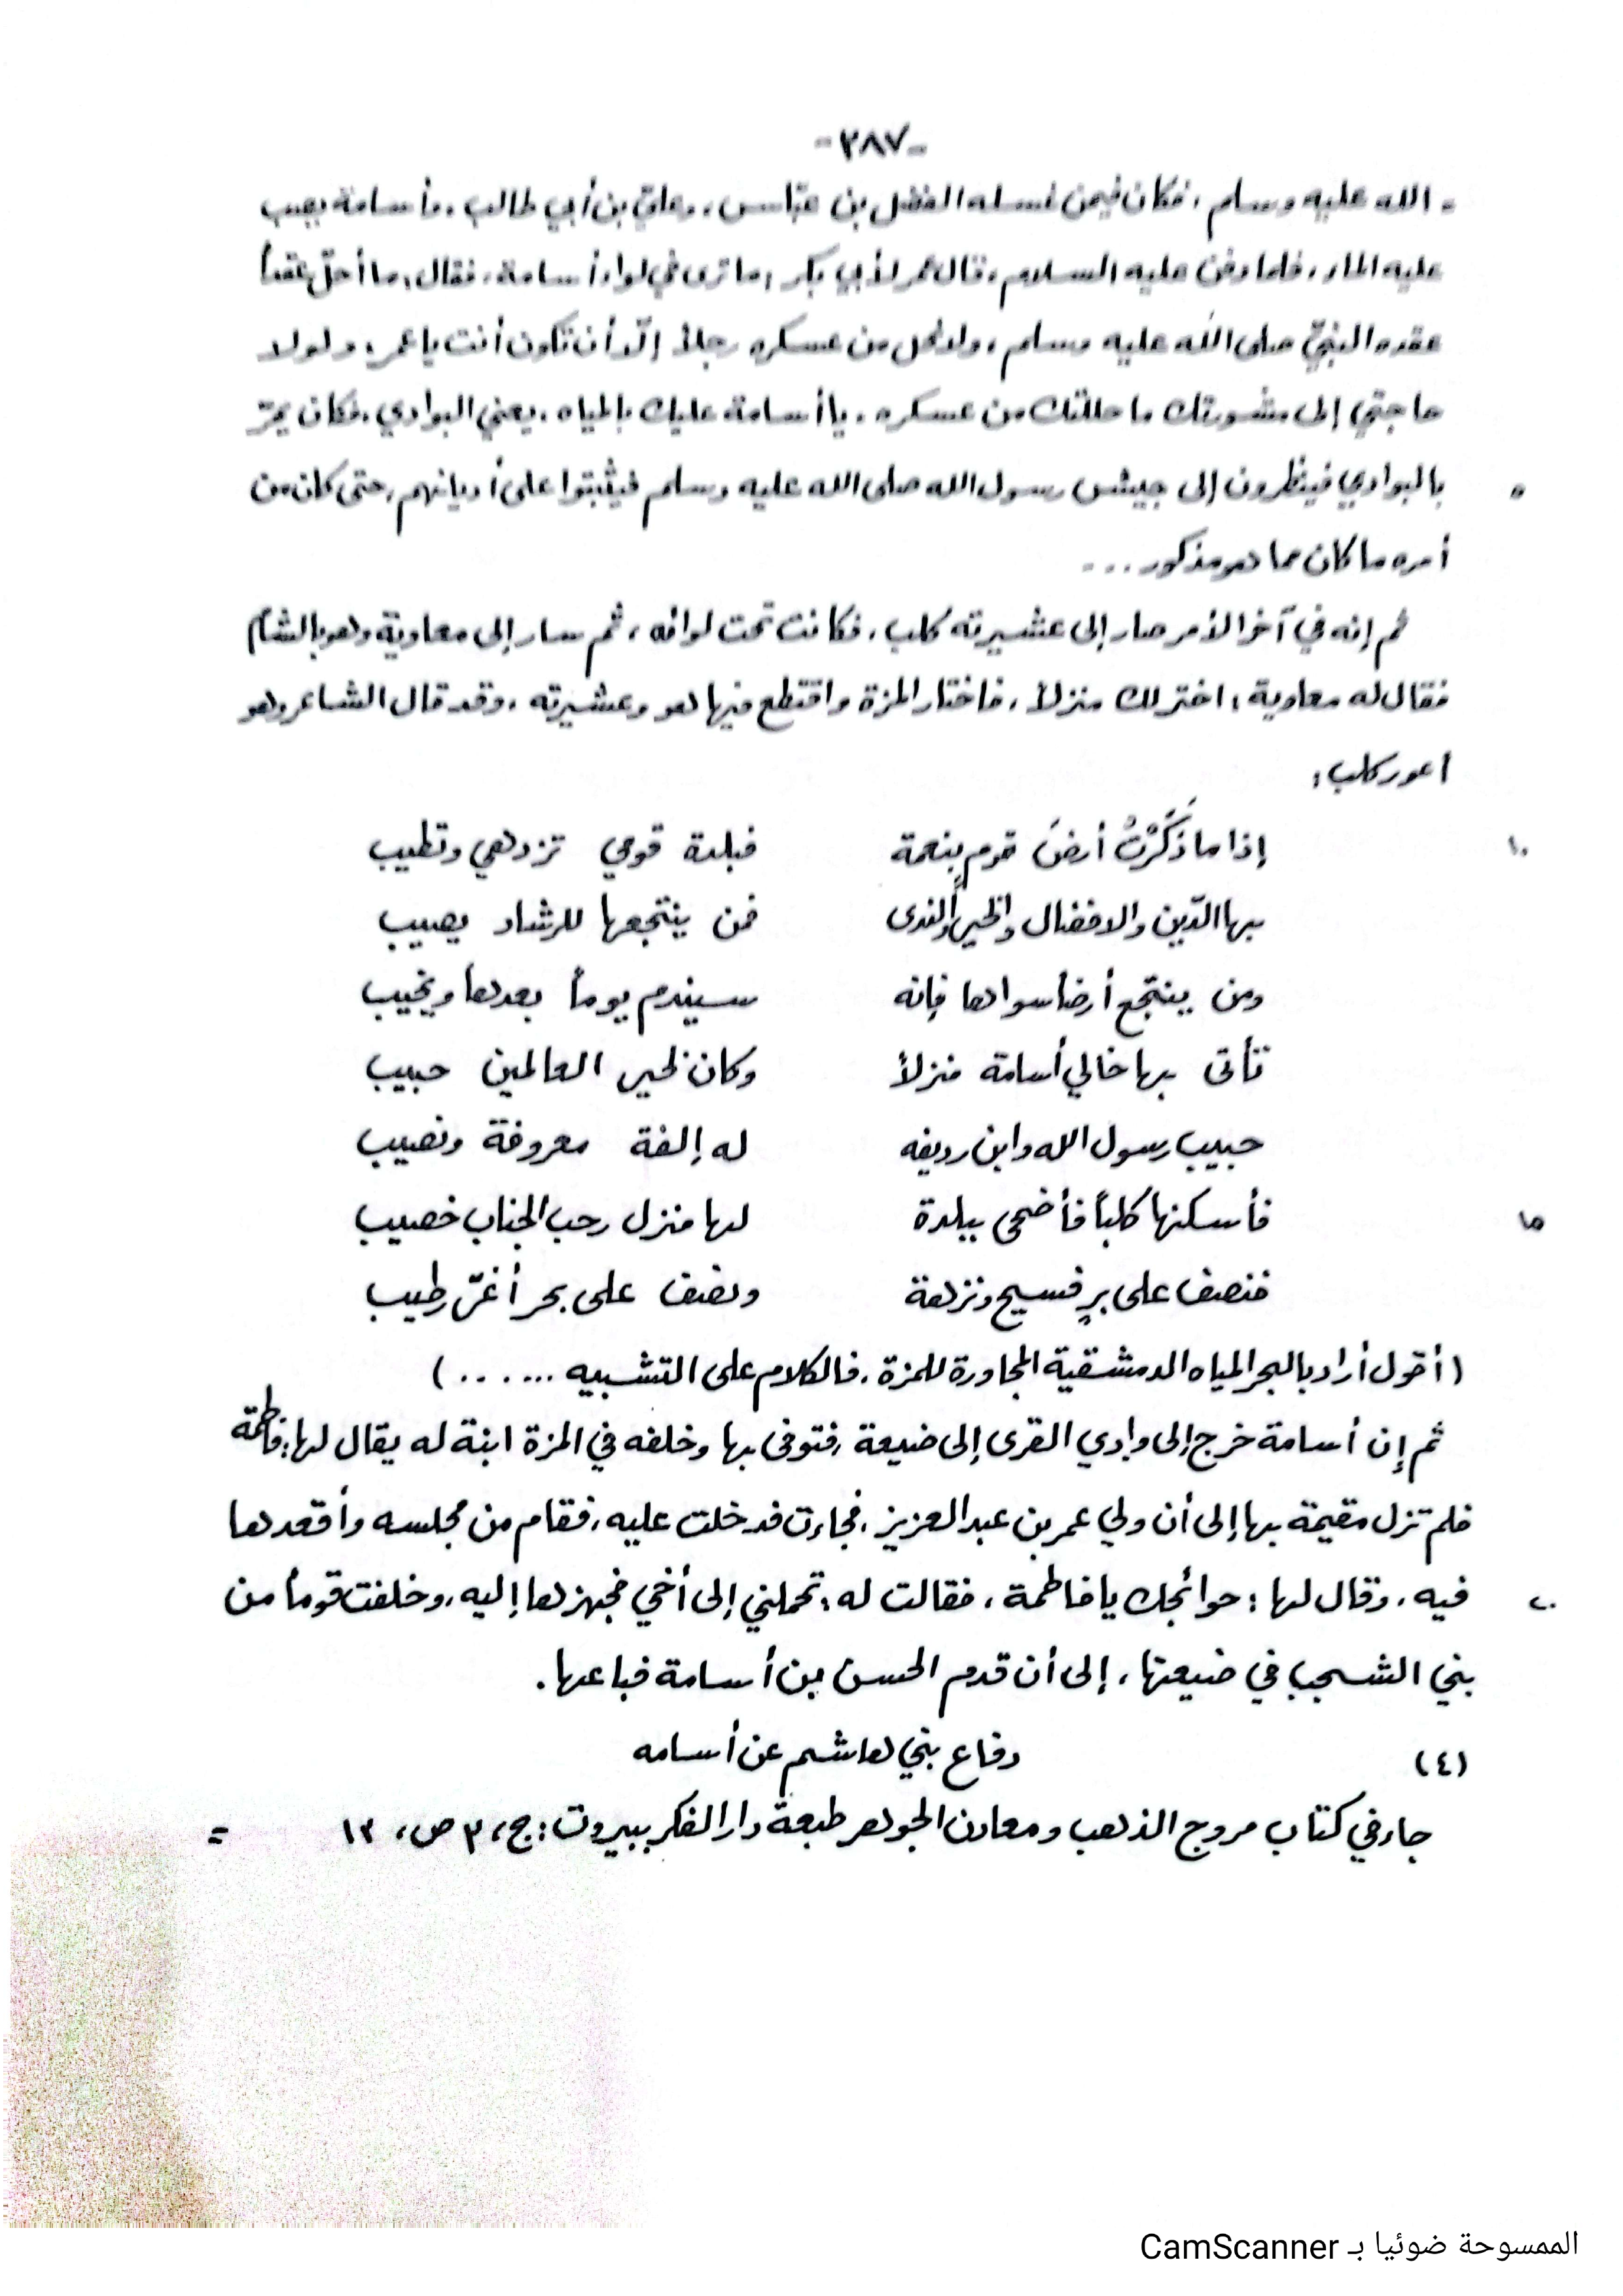 -٢٨٧-
= الله عليه وسلم، فكان فيمن غسله الفضل بن عبّاس، وعليّ بن أبي طالب، وأسامة يصب
عليه الماء، فلما دفن عليه السلام، قال عمر لأبي بكر: ما ترى في لواء أسامة، فقال: ما أحلّ عقداً
عقده النبيّ صلى الله عليه وسلم، ولا يحل من عسكره رجلاً إلّا أن تكون أنت يا عمر، ولولا
حاجتي إلى مشورتك ما حللتك من عسكره، يا أسامة عليك بالمياه، يعني البوادي، فكان يمرّ
٥ بالبوادي فينظرون إلى جيش رسول الله صلى الله عليه وسلم فيثبتوا على أديانهم، حتى كان من
أمره ما كان مما هو مذكور ...
ثم إنه في آخر الأمر صار إلى عشيرته كلب، فكانت تحت لوائه، ثم سار إلى معاوية وهو بالشام
فقال له معاوية: اختر لك منزلاً، فاختار المزة واقتطع فيها هو وعشيرته، وقد قال الشاعر وهو
أعور كلب:
١٠ إذا ما ذَكَرْتُ أرضَ قومٍ بنعمة فبلدة قومي تزدهي وتطيب
بها الدّين والافضال والخير والندى فمن ينتجعها للرشاد يصيب
ومن ينتجع أرضاً سواها فإنه سيندم يوماً بعدها ويخيب
تأتى بها خالي أسامة منزلاً وكان لخير العالمين حبيب
حبيب رسول الله وابن رديفه له إلفة معروفة ونصيب
١٥ فأسكنها كلباً فأضحى ببلدة لها منزل رحب الجناب خصيب
فنصف على برٍ فسيح ونزهة ونصف على بحر أغرّ رطيب
(أقول أراد بالبحر المياه الدمشقية المجاورة للمزة، فالكلام على التشبيه ......)
ثم إن أسامة خرج إلى وادي القرى إلى ضيعة، فتوفى بها وخلفه في المزة ابنة له يقال لها: فاطمة
فلم تزل مقيمة بها إلى أن ولي عمر بن عبد العزيز، فجاءت فدخلت عليه، فقام من مجلسه وأقعدها
٢٠ فيه، وقال لها: حوائجك يا فاطمة، فقالت له: تحملني إلى أخي فجهزها إليه، وخلفت قوماً من
بني الشجب في ضيعتها، إلى أن قدم الحسن بن أسامة فباعها.
(٤) دفاع بني هاشم عن أسامه
جاء في كتاب مروج الذهب ومعادن الجوهر طبعة دار الفكر ببيروت: ج، ٣ ص، ١٣ =
الممسوحة ضوئيا بـ CamScanner